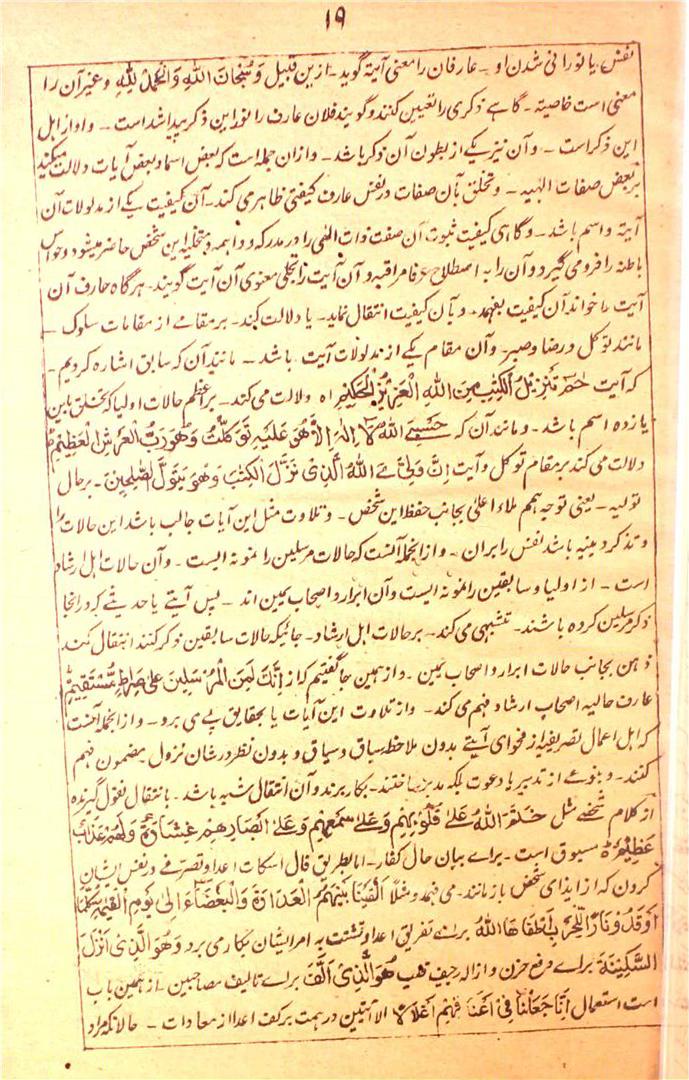 ۱۹
نفس یا نورانی شدن او۔ عارفان را معنی آیة گوید۔ ازین قبیل وَسُبْحَانَ اللهِ وَالْحَمْدُ لِلّٰهِ وغیر آن را
معنی است خاصیة۔ گاهے ذکری را تعیین کنند و گویند فلان عارف را نور این ذکر پیدا شد است۔ و او از اهل
این ذکر است۔ وآن نیز یکے از بطون آن ذکر باشد۔ و ازان جمله است که بعض اسما و بعض آیات دلالت میکند
بر بعض صفات الٰهیه۔ و تخلق بآن صفات در نفس عارف کیفتی ظاهر می کند۔ آن کیفیت یکے از مدلولات آن
آیة و اسم باشد۔ و گاهی کیفیت ثبوت آن صفت ذات الٰهی را در مدرکه و واهمه و متخیله این شخص حاضر میشود و حواس
باطنه را فرومی گیرد و آن را به اصطلاح عرفا مراقبه و آن آیت را تجلی معنوی آن آیت گویند۔ هرگاه عارف آن
آیت را خواند آن کیفیت بفهمد۔ و بآن کیفیت انتقال نماید۔ یا دلالت کند۔ بر مقامے از مقامات سلوک۔
مانند توکل و رضا و صبر۔ وآن مقام یکے از مدلولات آیت باشد۔ مانند آن که سابق اشاره کردیم۔
که آیت حٰمٓ تَنْزِیْلُ الْکِتٰبِ مِنَ اللهِ الْعَزِیْزِ الْحَکِیْمِ اه دلالت می کند۔ بر اعظم حالات اولیا که تخلق باین
یازده اسم باشد۔ و مانند آن که حَسْبِیَ اللهُ لَا اِلٰهَ اِلَّا هُوَ عَلَیْهِ تَوَکَّلْتُ وَهُوَ رَبُّ الْعَرْشِ الْعَظِیْمِ
دلالت می کند بر مقام توکل و آیت اِنَّ وَلِیِّ یَ اللهُ الَّذِیْ نَزَّلَ الْکِتٰبَ وَهُوَ یَتَوَلَّی الصّٰلِحِیْنَ۔ بر حال
تولیه۔ یعنی توجه همم ملاء اعلی بجانب حفظ این شخص۔ و تلاوت مثل این آیات جالب باشد این حالات را
و تذکر و منبه باشد نفس را بران۔ و ازانجمله آنست که حالات مرسلین را نمونه ایست۔ وآن حالات اهل ارشاد
است۔ از اولیا و سابقین را نمونه ایست و آن ابرار و اصحاب یمین اند۔ پس آیتے یا حدیثے که در انجا
ذکر مرسلین کرده باشند۔ تنبیهی می کند۔ بر حالات اهل ارشاد۔ جائیکه حالات سابقین ذکر کنند انتقال کند
ذهن بجانب حالات ابرار و اصحاب یمین۔ و از همین جا گفتیم که از اِنَّکَ لَمِنَ الْمُرْسَلِیْنَ عَلٰی صِرَاطٍ مُّسْتَقِیْمٍ
عارف حالیه اصحاب ارشاد فهم می کند۔ و از تلاوت این آیات یا بحقایق پے می برد۔ و ازانجمله آنست
که اهل اعمال تصریفیه از فحوای آیتے بدون ملاحظه سباق و سیاق و بدون نظر در شان نزول۔ مضمون فهم
کنند۔ و بنوعے از تدبیر یا دعوت بلکه مدبر ساختند۔ بکار برند و آن انتقال شبه باشد۔ بانتقال تفول گیرنده
از کلام شخصے مثل خَتَمَ اللهُ عَلٰی قُلُوْبِهِمْ وَعَلٰی سَمْعِهِمْ وَعَلٰی اَبْصَارِهِمْ غِشَاوَةٌ وَلَهُمْ عَذَابٌ
عَظِیْمٌ مسوق است۔ براے بیان حال کفار۔ اما بطریق فال اسکات اعدا و تصرف در نفس ایشان
کردن که از ایذای شخص باز مانند۔ می فهمد و مثلا اَلْقَیْنَا بَیْنَهُمُ الْعَدَاوَةَ وَالْبَغْضَاءَ اِلٰی یَوْمِ الْقِیٰمَةِ کُلَّمَا
اَوْقَدُوْا نَارًا لِّلْحَرْبِ اَطْفَاَهَا اللهُ براے تفریق اعدا و تشتت به امر ایشان بکار می برد وَهُوَ الَّذِیْ اَنْزَلَ
السَّکِیْنَةَ براے دفع حزن و ازاله رجیف قلب هُوَ الَّذِیْ اَلَّفَ براے تالیف مصاحبین۔ از همین باب
است استعمال اِنَّا جَعَلْنَا فِیْ اَعْنَاقِهِمْ اَغْلَالًا الآیتین در همت بر کف اعدا از معادات۔ حالانکه مراد